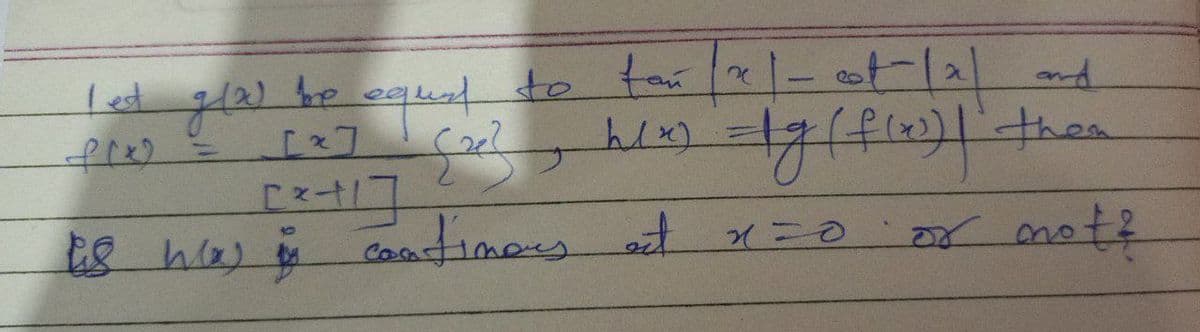 let g(x) be equal to tan⁻|x| - cot⁻|x| and
f(x) = [x] / [x+1] {x}, h(x) = |g(f(x))| then
Is h(x) is continous at x=0 or not?